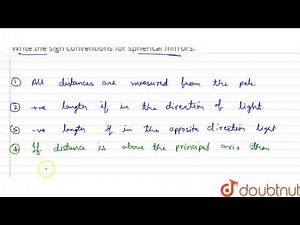 Write the sign conventions for spherical mirrors.
① All distances are measured from the pole
② +ve length if in the direction of light.
③ -ve length if in the opposite direction light
④ If distance is above the principal axis then
doubtnut